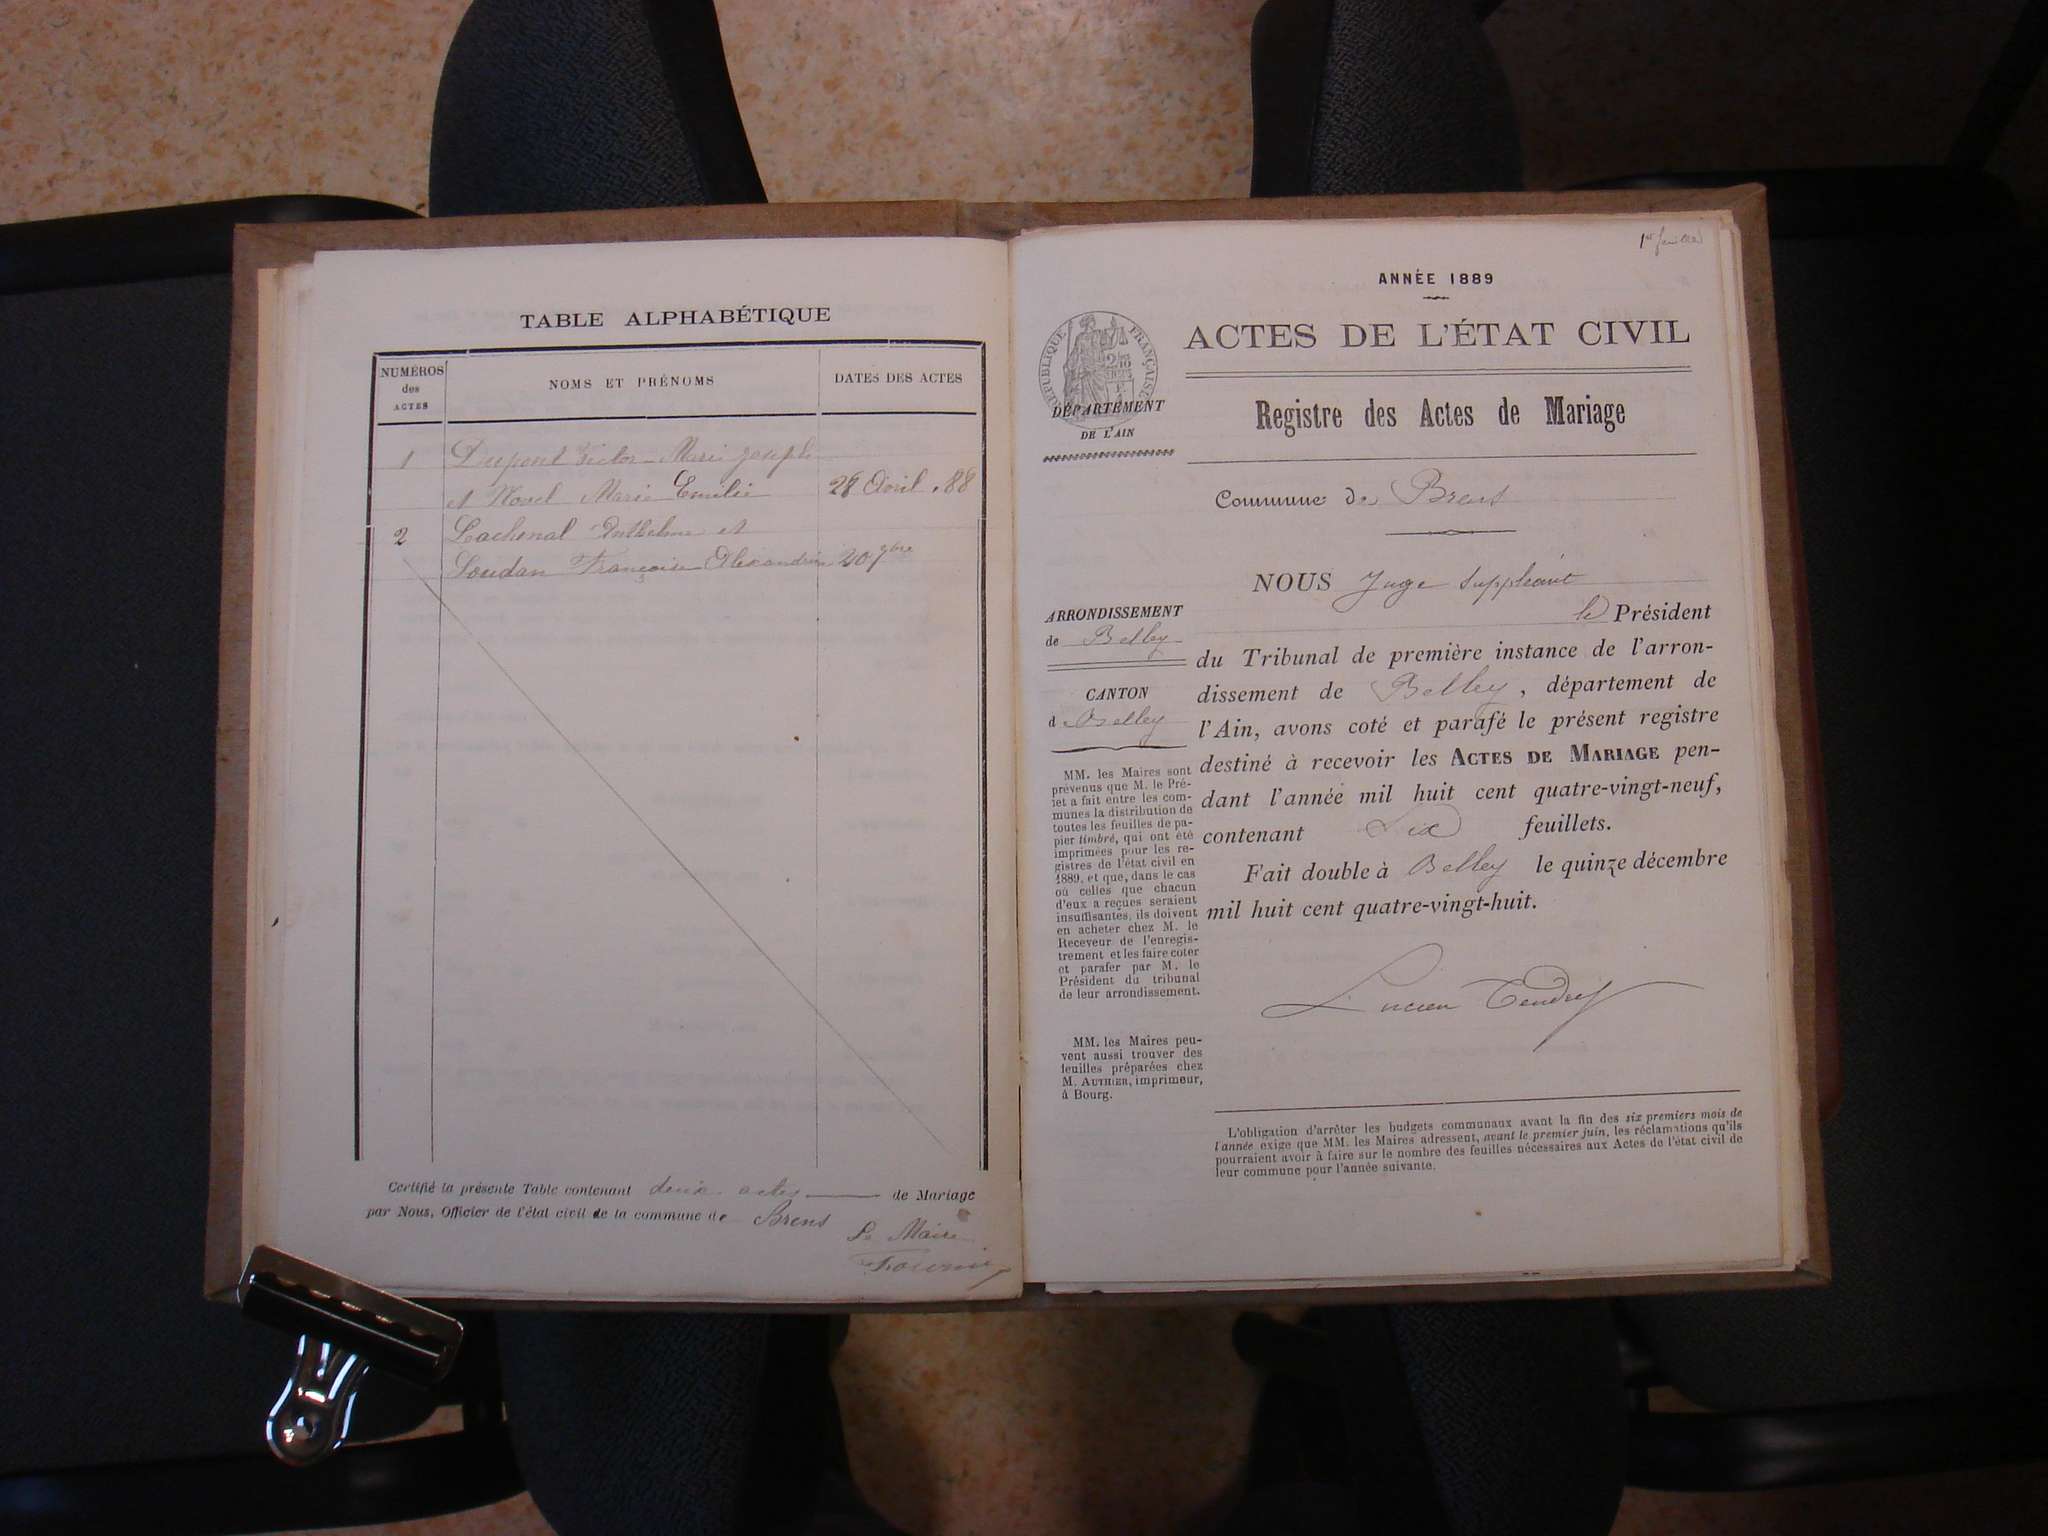 TABLE ALPHABÉTIQUE
NUMÉROS
des
ACTES
NOMS ET PRÉNOMS
DATES DES ACTES
1 Dupont Victor Marie Joseph
et Novel Marie Emilie 28 Avril .88
2 Lachenal Anthelme et
Soudan Françoise Alexandrine 20 7bre
Certifié la présente Table contenant deux actes de Mariage
par Nous, Officier de l'état civil de la commune de Brens
Le Maire
1er feuillet
ANNÉE 1889
ACTES DE L'ÉTAT CIVIL
RÉPUBLIQUE FRANÇAISE
DÉPARTEMENT
DE L'AIN
Registre des Actes de Mariage
Commune de Brens
NOUS Juge Suppléant
le Président
du Tribunal de première instance de l'arron-
dissement de Belley, département de
l'Ain, avons coté et parafé le présent registre
destiné à recevoir les ACTES DE MARIAGE pen-
dant l'année mil huit cent quatre-vingt-neuf,
contenant Six feuillets.
Fait double à Belley le quinze décembre
mil huit cent quatre-vingt-huit.
Lucien Tendret
ARRONDISSEMENT
de Belley
CANTON
d Belley
MM. les Maires sont
prévenus que M. le Pré-
fet a fait entre les com-
munes la distribution de
toutes les feuilles de pa-
pier timbré, qui ont été
imprimées pour les re-
gistres de l'état civil en
1889, et que, dans le cas
où celles que chacun
d'eux a reçues seraient
insuffisantes, ils doivent
en acheter chez M. le
Receveur de l'enregis-
trement et les faire coter
et parafer par M. le
Président du tribunal
de leur arrondissement.
MM. les Maires peu-
vent aussi trouver des
feuilles préparées chez
M. AUTHIER, imprimeur,
à Bourg.
L'obligation d'arrêter les budgets communaux avant la fin des six premiers mois de
l'année exige que MM. les Maires adressent, avant le premier juin, les réclamations qu'ils
pourraient avoir à faire sur le nombre des feuilles nécessaires aux Actes de l'état civil de
leur commune pour l'année suivante.